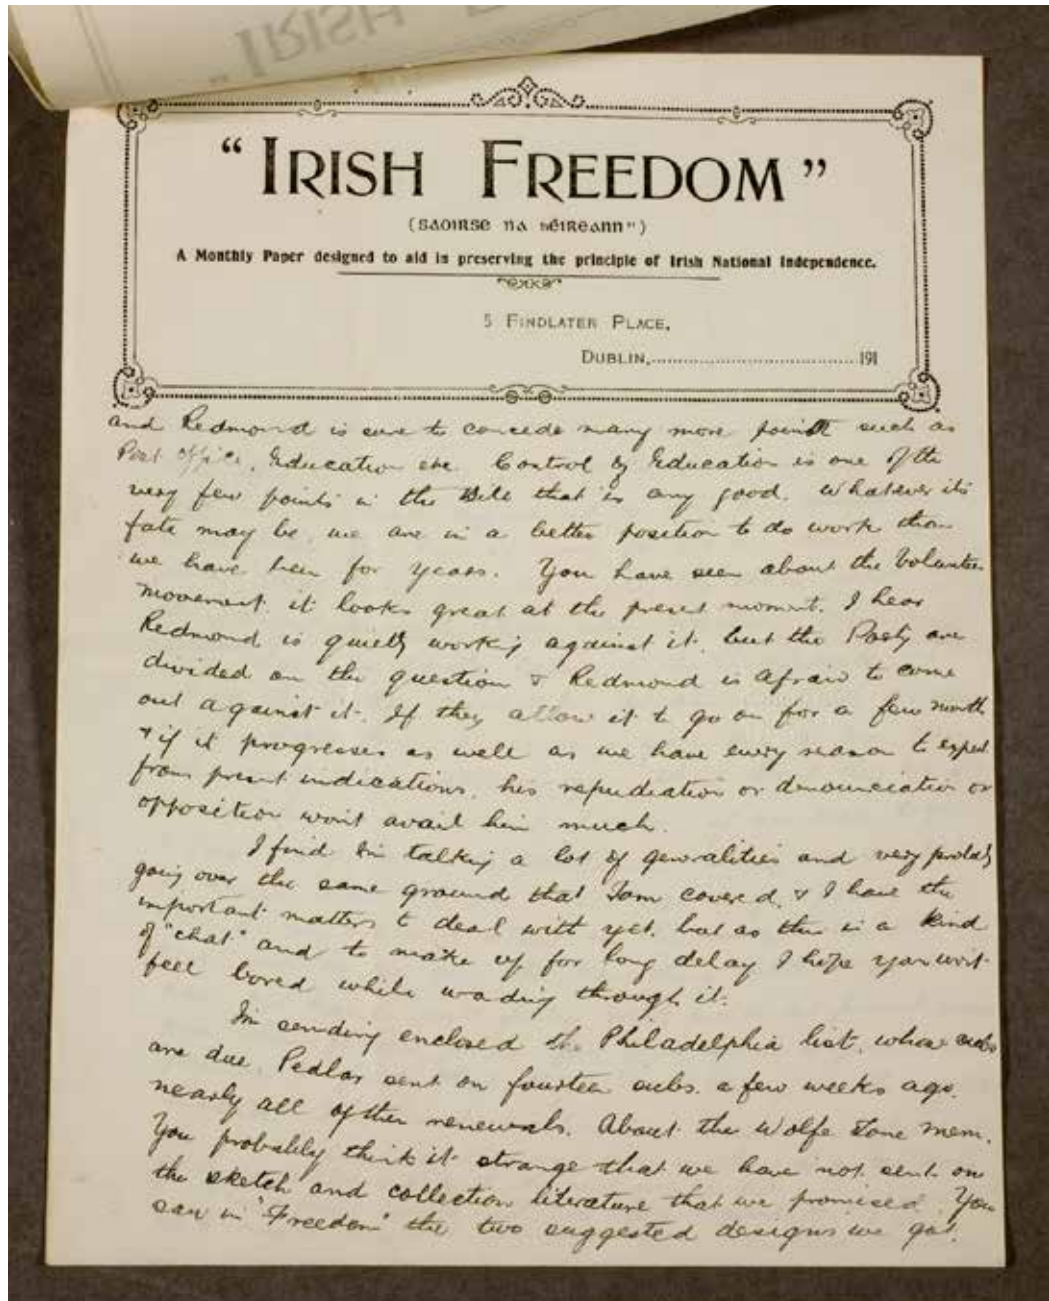 "IRISH F
"IRISH FREEDOM"
(SAOIRSE NA hÉIREANN")
A Monthly Paper designed to aid in preserving the principle of Irish National Independence.
5 FINDLATER PLACE,
DUBLIN,.......................................191
and Redmond is sure to concede many more points such as
Post Office, Education etc. Control of Education is one of the
very few points in the Bill that is any good. Whatever its
fate may be, we are in a better position to do work than
we have been for years. You have seen about the Volunteer
movement. it looks great at the present moment. I hear
Redmond is quietly working against it, but the Party are
divided on the question & Redmond is afraid to come
out against it. If they allow it to go on for a few months
& if it progresses as well as we have every reason to expect
from present indications, his repudiation or denunciation or
opposition wont avail him much.
I find I'm talking a lot of generalities and very probably
going over the same ground that Tom covered, & I have the
important matters to deal with yet, but as this is a kind
of "chat" and to make up for long delay I hope you wont
feel bored while wading through it.
I'm sending enclosed the Philadelphia list, whose subs
are due. Pedlar sent on fourteen subs. a few weeks ago.
nearly all of them renewals. About the Wolfe Tone mem.
You probably think it strange that we have not sent on
the sketch and collection literature that we promised. You
saw in "Freedom" the two suggested designs we got.